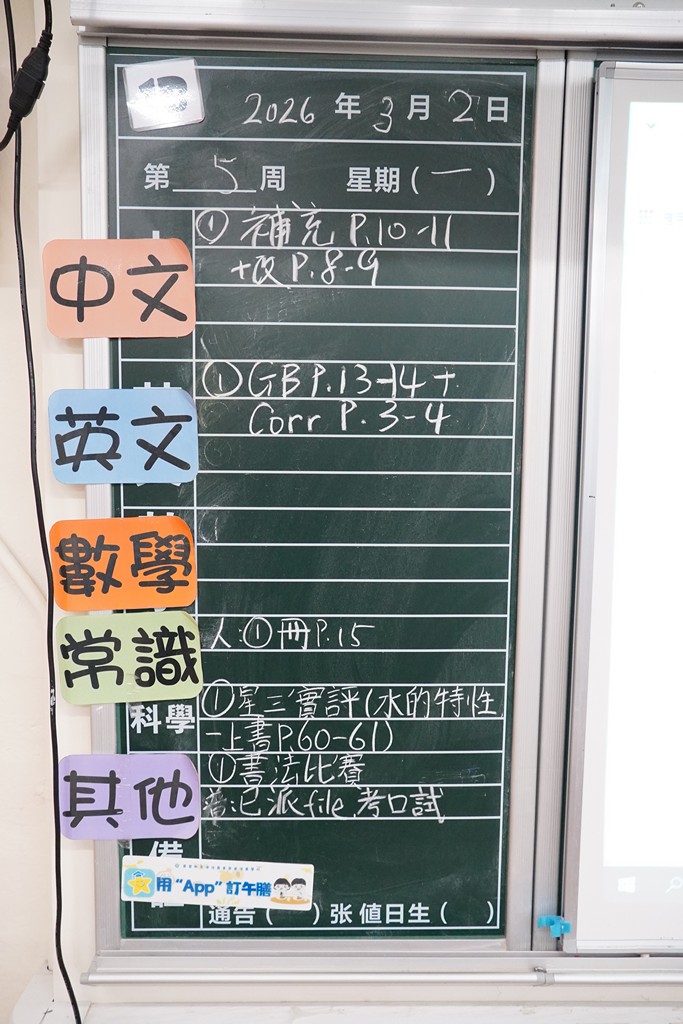 2026年3月2日
第5周 星期(一)
中文
①補充P.10-11
+改P.8-9
英文
①GBP.13-14+
Corr P.3-4
數學
常識
人:①冊P.15
科學
①星三實評(水的特性
一上書P.60-61)
其他
①書法比賽
普:已派file,考口試
備
用“App”訂午膳
通告( )张 值日生( )